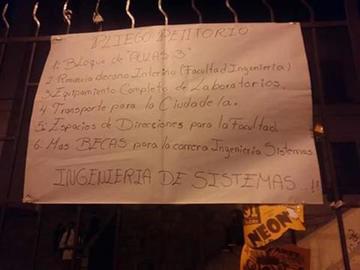 PLIEGO PETITORIO
1. Bloque de "AULAS 3"
2. Renuncia decano Interino (Facultad Ingenieria)
3. Equipamiento Completo de Laboratorios.
4. Transporte para la Ciudadela.
5. Espacios de Direcciones para la Facultad
6. Mas BECAS para la carrera Ingenieria Sistemas
INGENIERIA DE SISTEMAS...!!
NEON